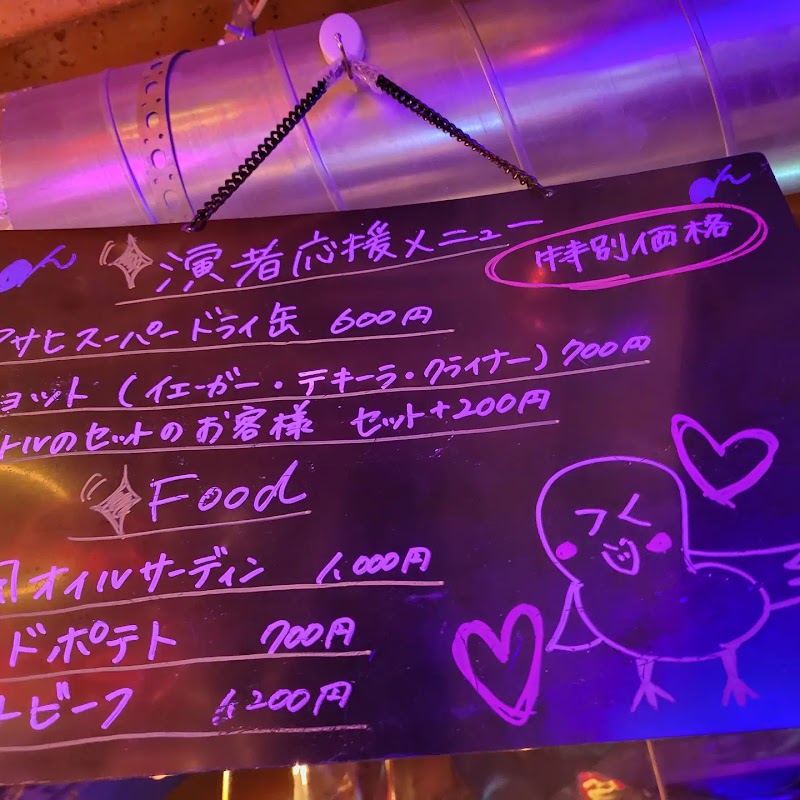 演者応援メニュー 特別価格
アサヒスーパードライ缶 600円
ョット (イエーガー・テキーラ・クライナー) 700円
トルのセットのお客様 セット+200円
Food
オイルサーディン 1,000円
ドポテト 700円
ビーフ 1,200円